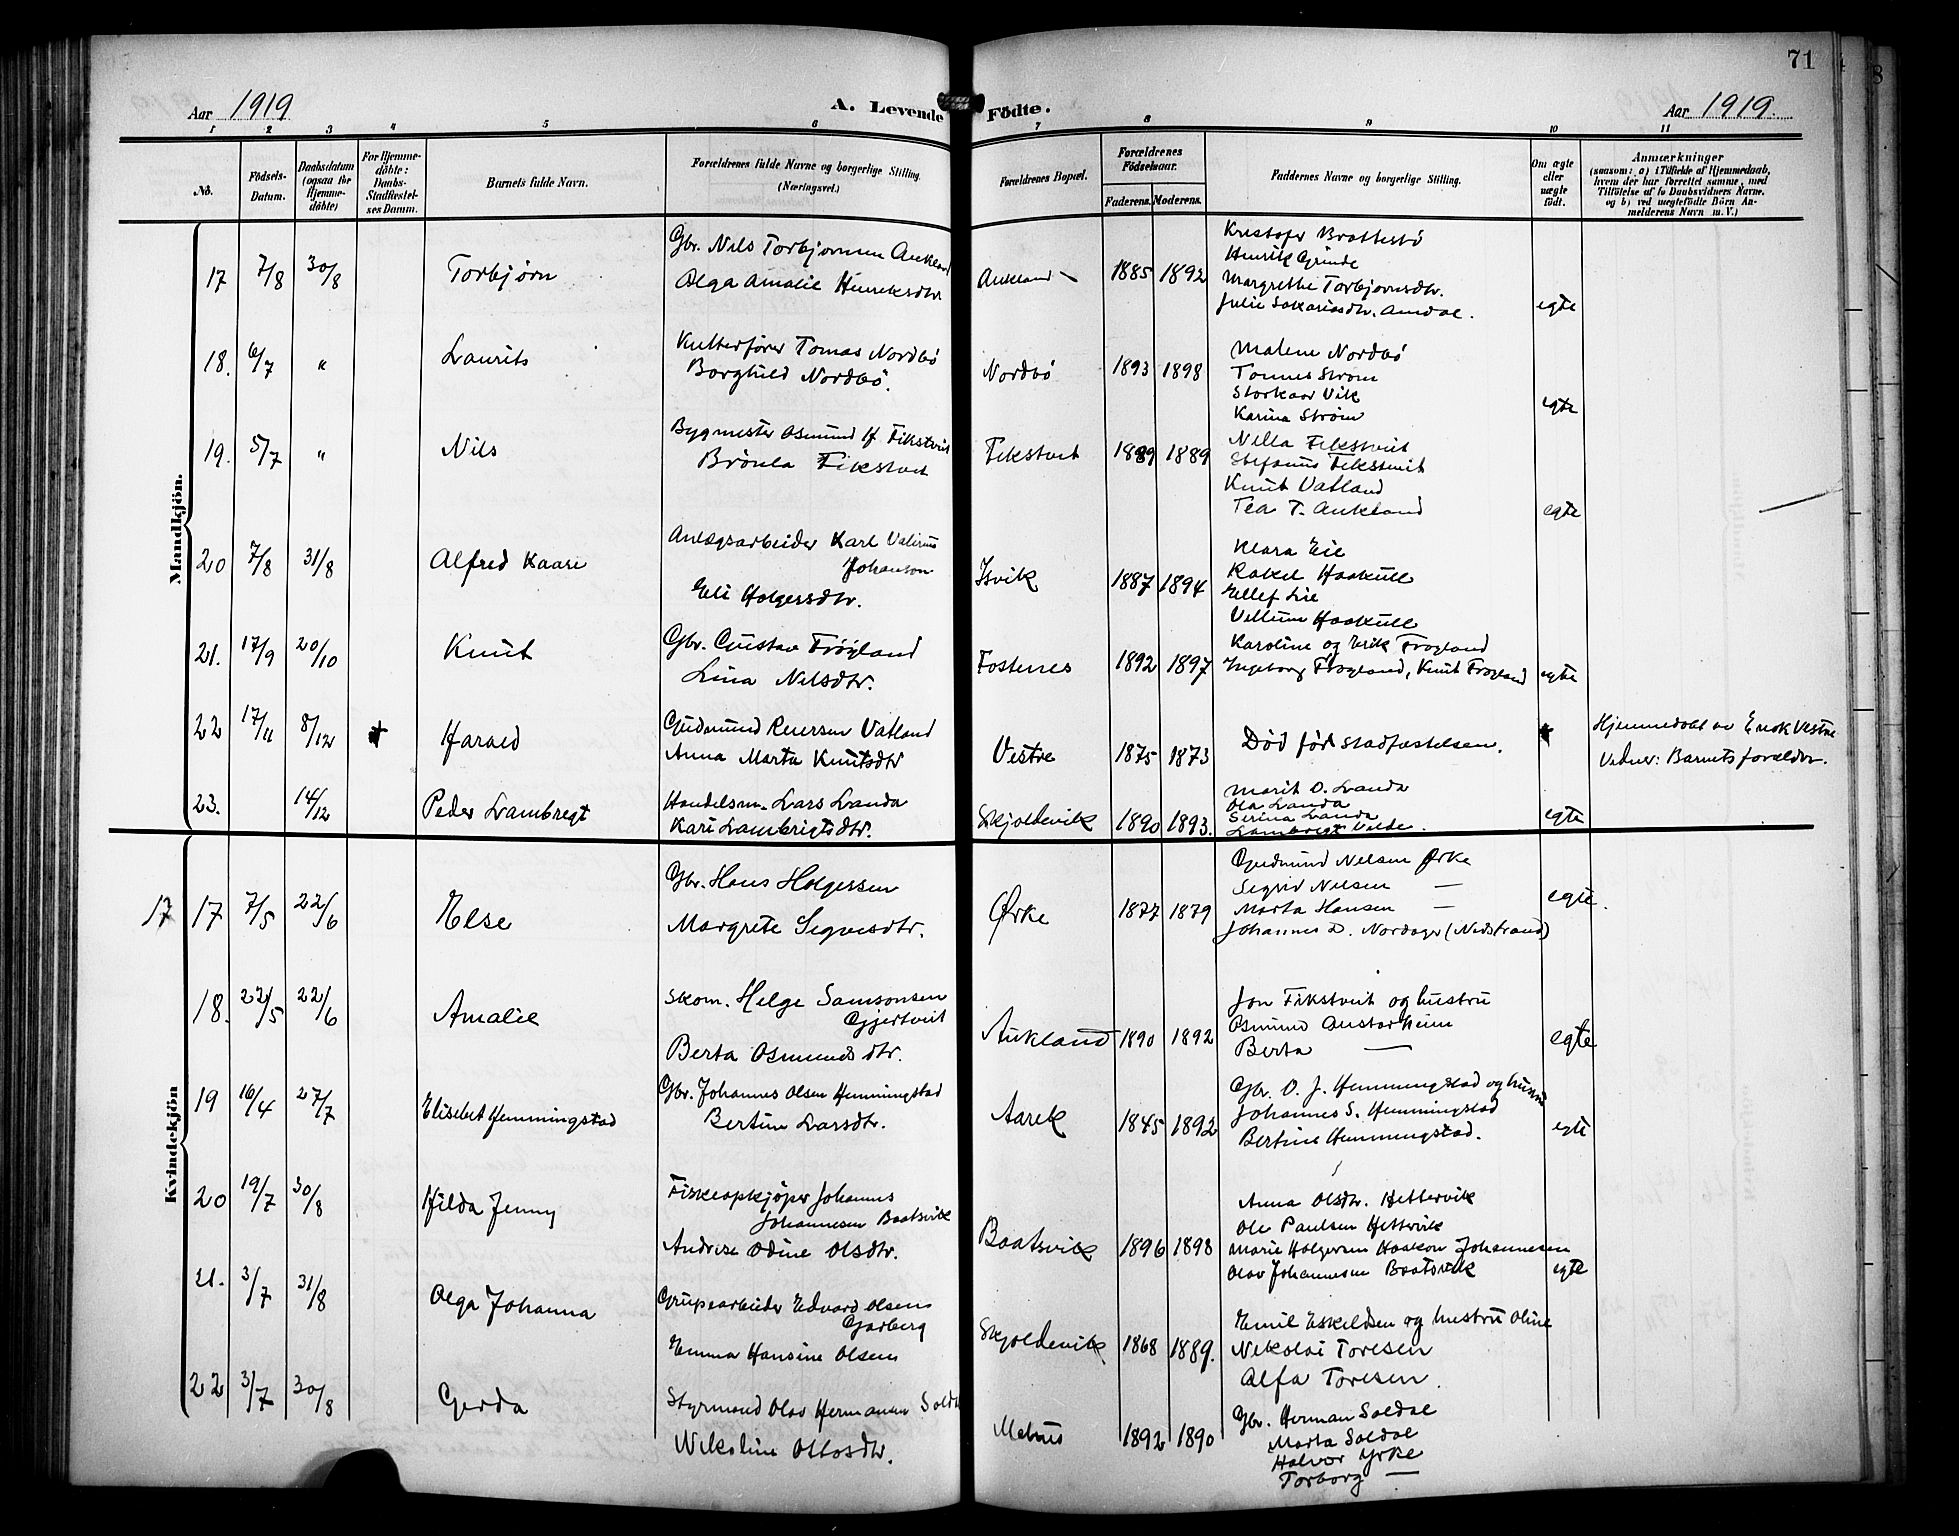 71
Aar 1919
A. Levende Fødte.
Aar 1919.
1 2 3 4 5 6 7 8 9 10 11
No.
Födsels-Datum.
Daabsdatum (ogsaa for Hjemme-döbte)
For Hjemme-döbte: Daabs-Stadfæstel-ses Datum.
Barnets fulde Navn.
Forældrenes fulde Navne og borgerlige Stilling.
(Næringsvei.)
Forældrenes Bopæl.
Forældrenes Födselsaar.
Faderens. Moderens.
Faddernes Navne og borgerlige Stilling.
Om ægte eller uægte födt.
Anmærkninger
(saasom: a) i Tilfælde af Hjemmedaab,
hvem der har forrettet samme, med
Tilföielse af to Daabsvidners Navne.
og b) ved uægtefödte Börn An-
melderens Navn m. V.)
Mandkjön.
17 7/8 30/8 Torbjørn
Gbr. Nils Torbjørnsen Aukland
Olga Amalie Henriksdtr
Aukland 1885 1892
Kristofer Brattestö
Henrik Grinde
Margrethe Torbjørnsdtr.
Julie Sakariasdtr. Amdal.
egte
18. 6/7 " Laurits
Kutterfører Tomas Nordbö
Borghild Nordbö.
Nordbö 1893 1898
Malene Nordbö
Tonnes Strøm
Storkaar Vik
Karina Strøm
egte
19. 5/7 " Nils
Bygmester Osmund H. Fikstveit
Brönla Fikstveit
Fikstveit 1889 1889
Nilla Fikstveit
Stefanus Fikstveit
Knut Vatland
Tea T. Aukland
egte
20 7/8 31/8 Alfred Kaare
Anlægsarbeider Karl
Johanson
Eli Holgersdtr.
Isvik 1887 1894
Klara Eie
Rakel Haakull
Ellef Eie
Haakull
21. 17/9 20/10 Knut
Gbr. Gustav Frögland
Lina Nilsdtr.
Fosternes 1892 1897
Karoline og Erik Frogland
Ingeborg Frogland, Knut Frogland
egte
22 17/11 8/12 Harald
Gudmund Reiersen Vatland
Anna Marta Knutsdtr
Vestre 1875 1873
Død før stadfæstelsen.
Hjemmedøbt av Enok Vestre
Vidner: Barnets forældre.
23. 14/12 Peder Lambregt
Handelsm. Lars Landa
Kari Lambrigtsdtr.
Skjoldevik 1890 1893.
Marit O. Landa
Ola Landa
Serina Landa
Lambregt Velde.
egte
Kvindekjön
17 17 7/5 22/6 Else
Gbr. Hans Holgersen
Margrete Sigvesdtr.
Ørke 1877 1879
Gudmund Nilsen Ørke
Sigrid Nilsen —
Marta Hansen —
Johannes D. Nordager (Nedstrand)
egte.
18. 22/5 22/6 Amalie
Skom. Helge Samsonsen
Gjertveit
Berta Osmundsdtr.
Aukland 1890 1892
Jon Fikstveit og hustru
Osmund Austarheim
Berta —
egte
19 16/4 27/7 Elisebet Hemmingstad
Gbr. Johannes Olsen Hemmingstad
Bertine Larsdtr.
Aarek 1845 1892
Gbr. O. J. Hemmingstad og hustru
Johannes S. Hemmingstad
Bertine Hemmingstad.
egte
20 19/7 30/8 Hilda Jenny
Fiskeopkjøper Johannes
Johannesen Baatsvik
Andrise Odine Olsdtr.
Baatsvik 1896 1898
Anna Olsdtr. Hettervik
Ole Paulsen Hettvik
Marie Holgersen Haakon Johannesen
Olav Johannesen Baatsvik
egte
21. 3/7 31/8 Olga Johanna
Grupearbeider Edvard Olsen
Garberg
Emma Hansine Olsen
Skjoldevik 1868 1889.
Emil Eskildsen og hustru Oline
Nikolai Toresen
Alfa Toresen.
22 3/7 30/8 Gerda
Styrmand Olav Hermansen Soldal
Nikoline Ottosdtr.
Metnes 1892 1890
Gbr. Herman Soldal
Marta Soldal
Halvor Yrke
Torborg —